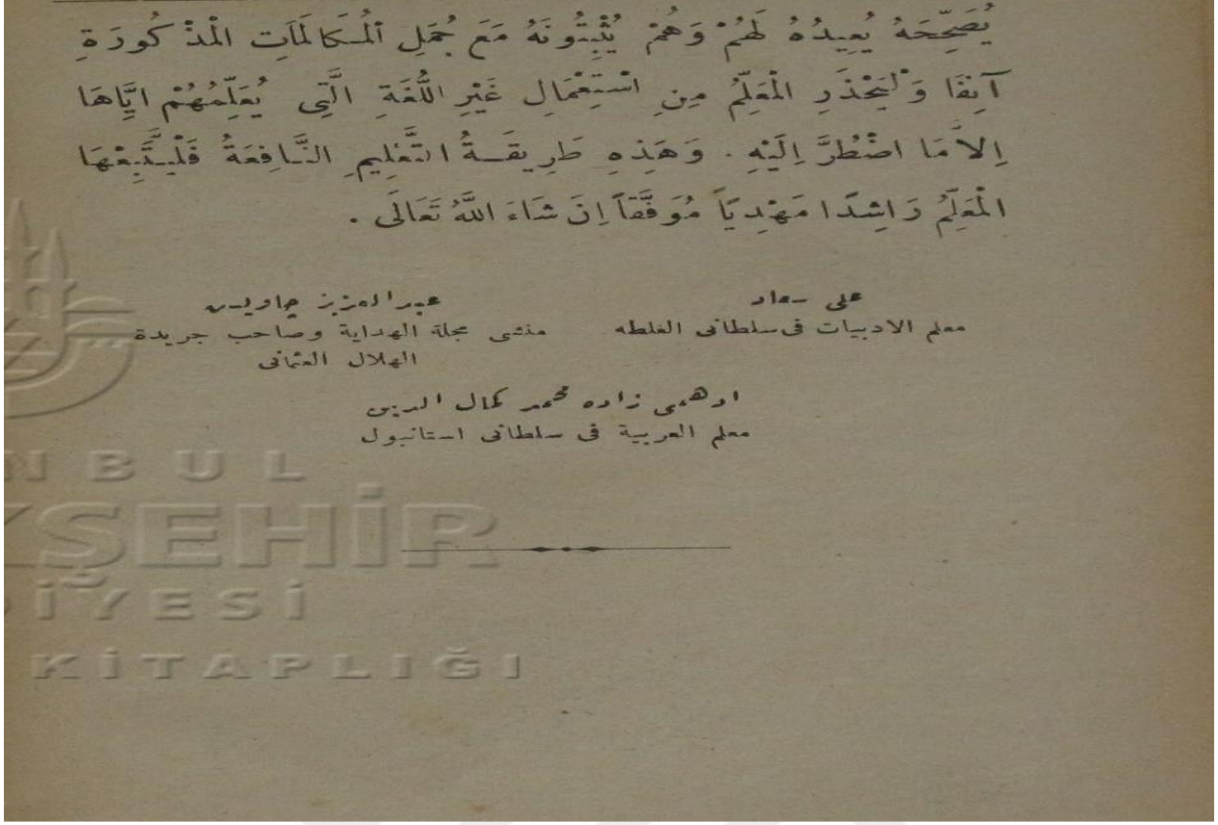 يُصَحِّحَهُ يُعِيدُهُ لَهُمْ وَهُمْ يُثْبِتُونَهُ مَعَ جُمَلِ الْمُكَالَمَاتِ الْمَذْكُورَةِ
آنِفًا وَلْيَحْذَرِ الْمُعَلِّمُ مِنِ اسْتِعْمَالِ غَيْرِ اللُّغَةِ الَّتِى يُعَلِّمُهُمْ اِيَّاهَا
اِلاَّ مَا اضْطُرَّ اِلَيْهِ . وَهَذِهِ طَرِيقَةُ التَّعْلِيمِ النَّافِعَةُ فَلْيَتَّبِعْهَا
الْمُعَلِّمُ رَاشِدًا مَهْدِيّاً مُوَفَّقاً اِنْ شَاءَ اللّٰهُ تَعَالَى .
على سعاد
عبد العزيز چاويش
معلم الادبيات فى سلطانى الغلطه
منشى مجلة الهداية وصاحب جريدة
الهلال العثمانى
ادهمى زاده محمد كمال الدين
معلم العربية فى سلطانى استانبول
NBUL
KŞEHİR
DİYESİ
KİTAPLIĞI